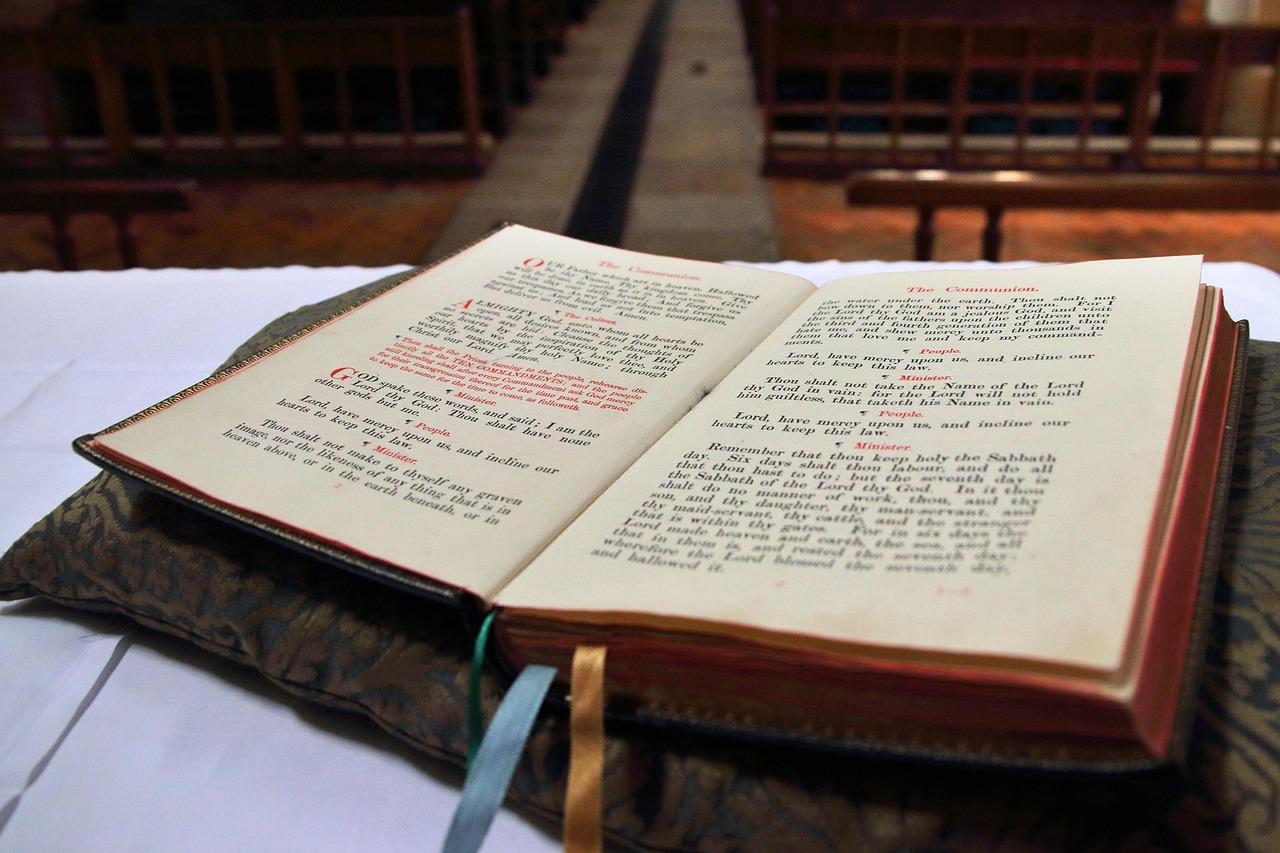 The Communion.
OUR Father which art in heaven. Hallowed
be thy Name. Thy kingdom come. Thy
will be done in earth,
us this day our daily bread. And forgive us
our trespasses, As we forgive them that trespass
against us. And lead us not into temptation,
But deliver us from evil. Amen.
¶ The Collect.
ALMIGHTY God, unto whom all hearts be
open, all desires known, and from whom
no secrets are hid: Cleanse the thoughts of
our hearts by the inspiration of thy Holy
Spirit, that we may perfectly love thee, and
worthily magnify thy holy Name; through
Christ our Lord. Amen.
¶ Then shall the Priest, turning to the people, rehearse dis-
tinctly all the TEN COMMANDMENTS; and the people
still kneeling shall, after every Commandment, ask God mercy
for their transgression thereof for the time past, and grace
to keep the same for the time to come, as followeth.
¶ Minister.
GOD spake these words, and said; I am the
Lord thy God: Thou shalt have none
other gods but me.
¶ People.
Lord, have mercy upon us, and incline our
hearts to keep this law.
¶ Minister.
Thou shalt not make to thyself any graven
image, nor the likeness of any thing that is in
heaven above, or in the earth beneath, or in
2
The Communion.
the water under the earth. Thou shalt not
bow down to them, nor worship them. For I
the Lord thy God am a jealous God, and visit
the sins of the fathers upon the children unto
the third and fourth generation of them that
hate me, and shew mercy unto thousands in
them that love me and keep my command-
ments.
¶ People.
Lord, have mercy upon us, and incline our
hearts to keep this law.
¶ Minister.
Thou shalt not take the Name of the Lord
thy God in vain: for the Lord will not hold
him guiltless, that taketh his Name in vain.
¶ People.
Lord, have mercy upon us, and incline our
hearts to keep this law.
¶ Minister.
Remember that thou keep holy the Sabbath
day. Six days shalt thou labour, and do all
that thou hast to do; but the seventh day is
the Sabbath of the Lord thy God. In it thou
shalt do no manner of work, thou, and thy
son, and thy daughter, thy man-servant, and
thy maid-servant, thy cattle, and the stranger
that is within thy gates. For in six days the
Lord made heaven and earth, the sea, and all
that in them is, and rested the seventh day:
wherefore the Lord blessed the seventh day,
and hallowed it.